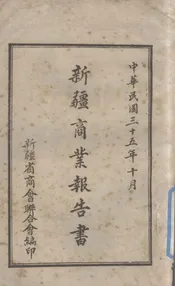 中華民國三十五年十月
新疆商業報告書
新疆省商會聯合會編印